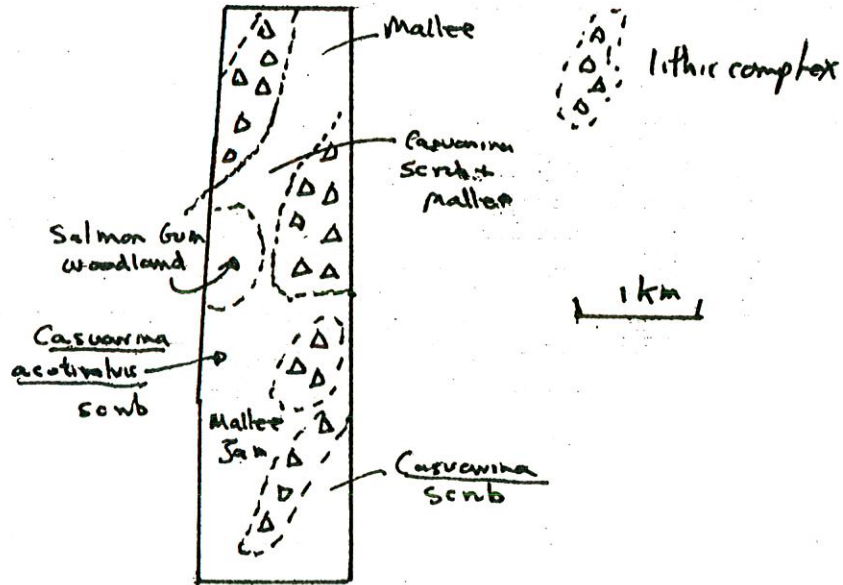 Mallee
lithic complex
Casuarina
scrub +
mallee
Salmon Gum
woodland
1 km
Casuarina
scrub
Mallee
Jam
Casuarina
scrub